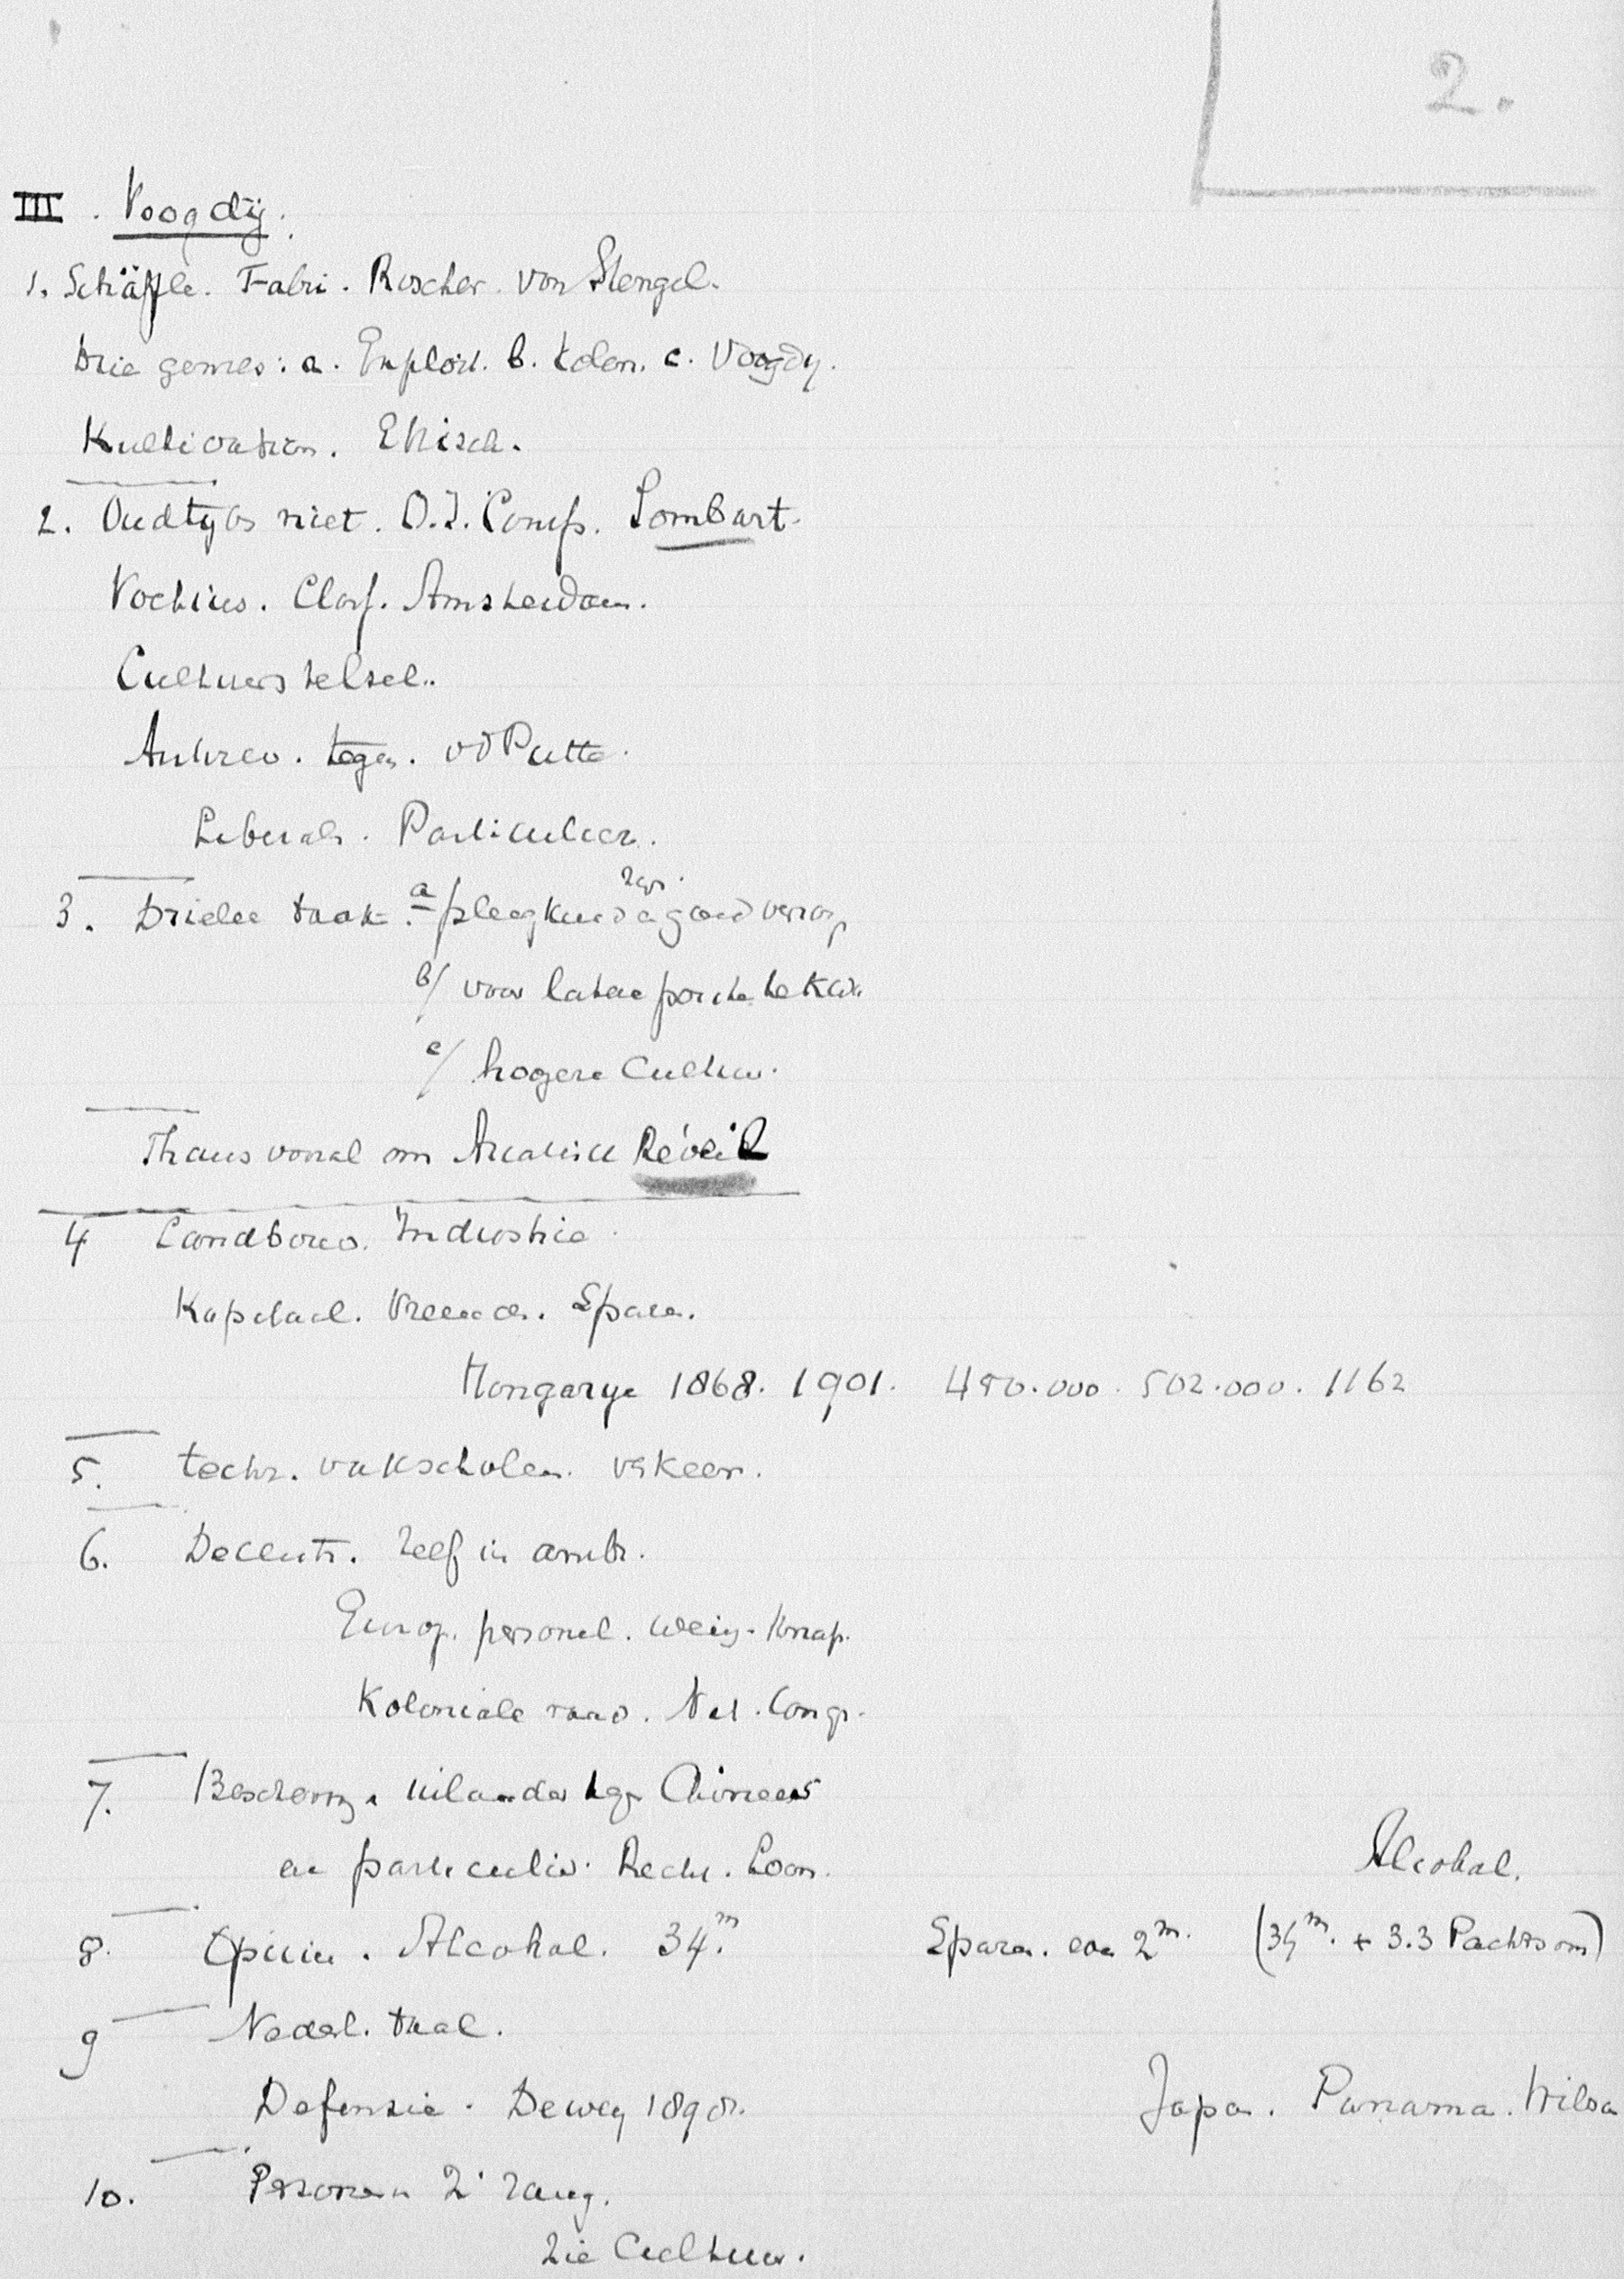 2.
III. Voogdij.
1. Schäffle. Fabri. Roscher. von Stengel.
Drie genres: a. Exploit. b. Kolon. c. Voogdy.
Kultivation. Ethisch.
2. Oudtyds niet. O.I. Comp. Sombart.
Voetius. Class. Amsterdam.
Cultuurstelsel.
Antirev. tegen. vd Putte.
Liberals. Particulier.
3. Driele taak. a pleegkind
b/ voor latere positie bekw.
c/ hogere Cultuur.
Thans vooral om Réveil
4 Landbouw. Industrie.
Kapitaal. Vreemd. Sparen.
Hongarye 1868. 1901. 480.000. 502.000. 1162
5. techn. vakscholen. verkeer.
6. Decentr. Zelf in ambt.
Europ. personeel. weinig. Knap.
Koloniale raad. Nat. Congr.
7. Bescherm. inlander teg. Chinees
en particulier. Recht. Loon.
Alcohol.
8. Opium. Alcohol. 34.m Sparen. 2m. (34m. + 3.3 Pachtsom)
9 Nederl. taal.
Defensie. Dewey 1898. Japan. Panama. Wilson
10. Personen 2e rang.
Zie Cultuur.